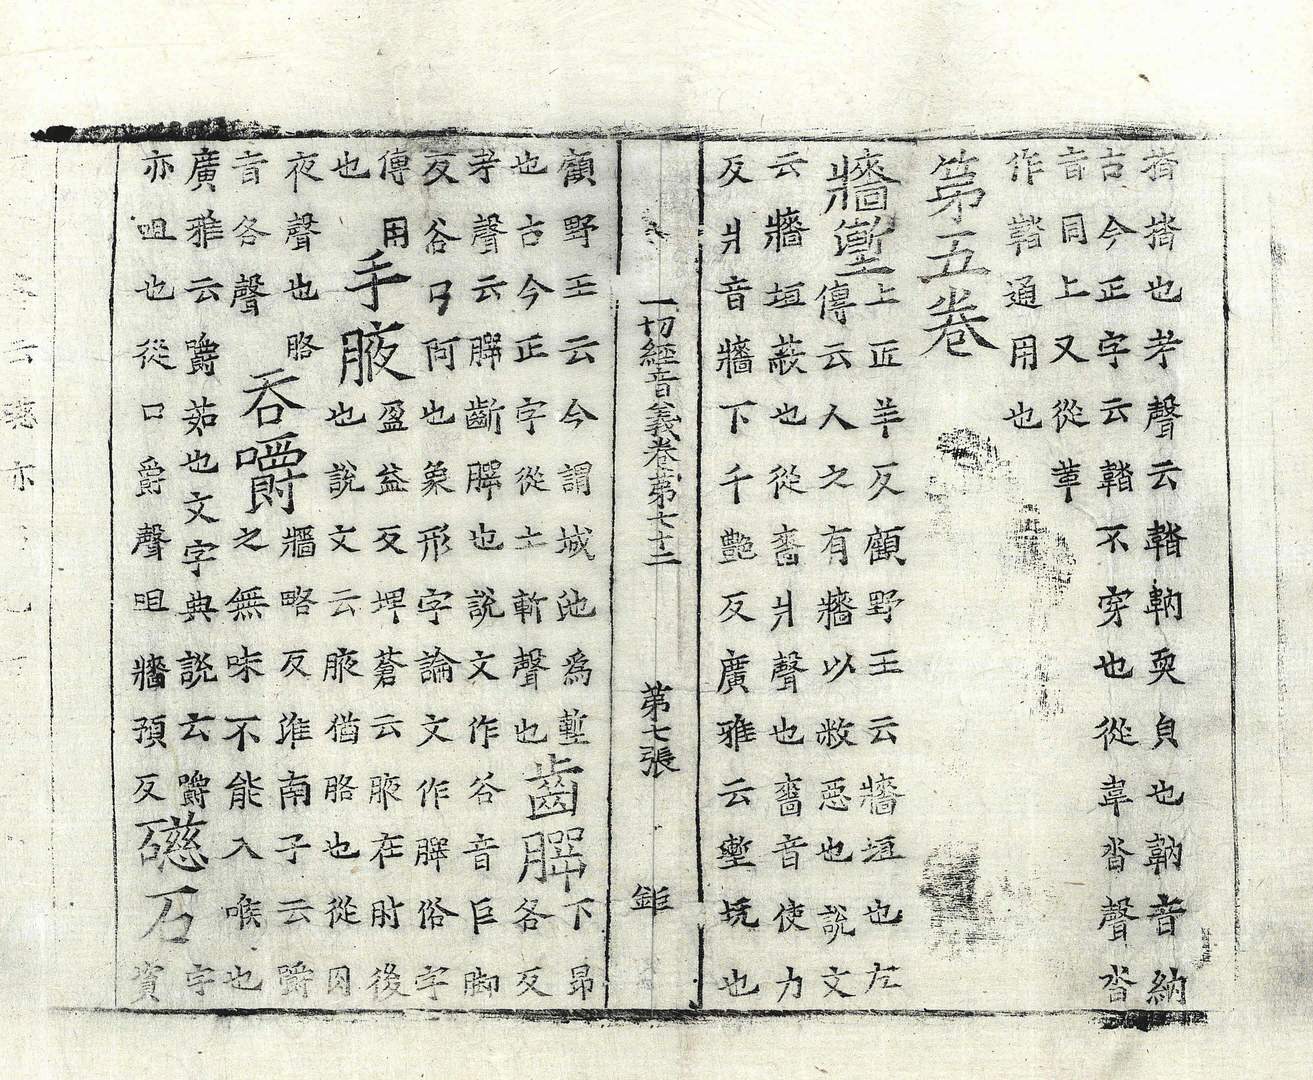 也考聲云鞜鞝耎皃也鞝音納
古今正字云鞜不穿也從韋沓聲沓
音同上又從革
作鞜通用也
第五卷
牆壍
上匠羊反顧野王云牆垣也左
傳云人之有牆以敝惡也說文
云牆垣蔽也從嗇爿聲也嗇音使力
反爿音牆下千艷反廣雅云壍坑也
一切經音義卷第七十二 第七張 鉅
顧野王云今謂城池爲壍
也古今正字從土斬聲也
齒𦟛
下昂
各反
考聲云𦟛齗𦟛也說文作谷音巨脚
反谷口阿也象形字論文作𦟛俗字
傳用
也
手腋
盈益反埤蒼云腋在肘後
也說文云腋猶胳也從肉
夜聲也胳
音各聲
吞嚼
牆略反淮南子云嚼
之無味不能入喉也
廣雅云嚼茹也文字典說云嚼
亦咀也從口爵聲咀牆預反
礠石
字
資